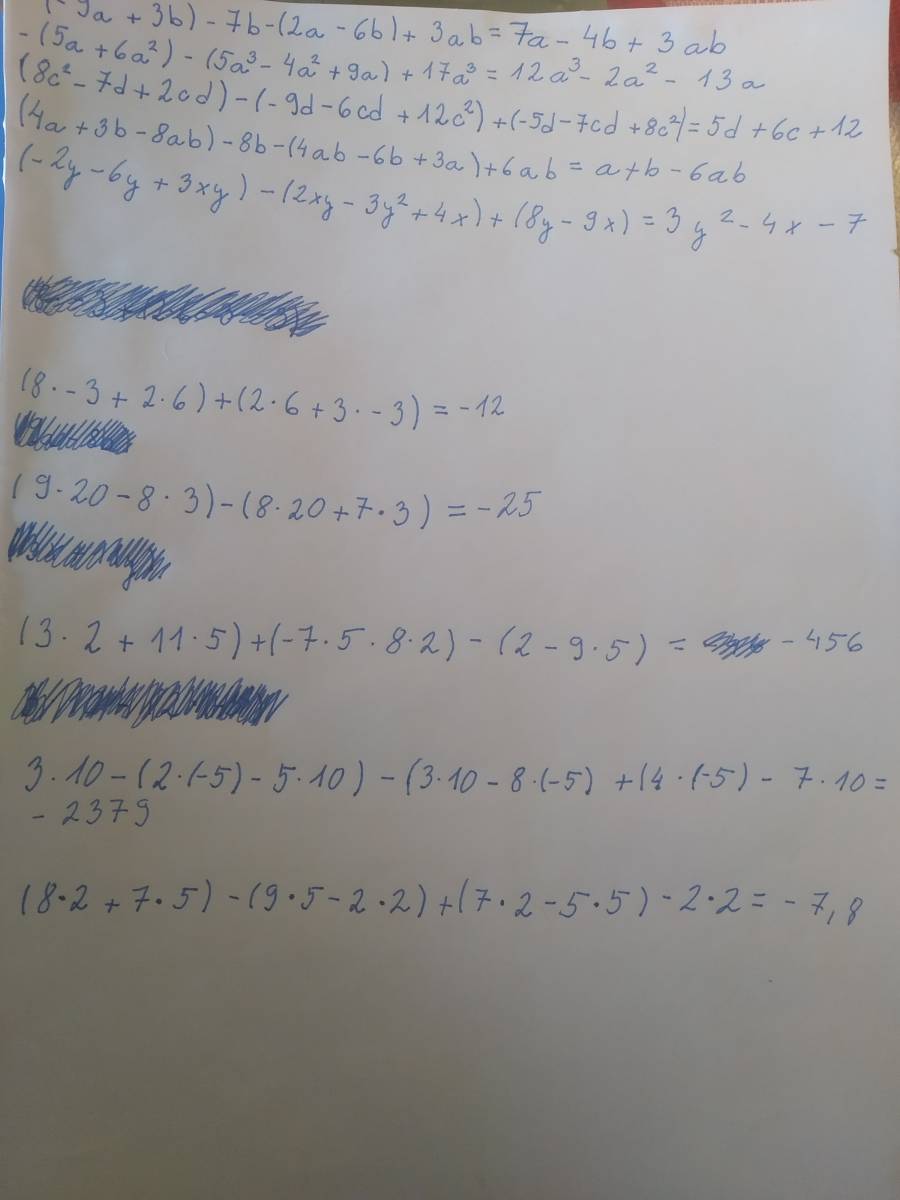 (-9a + 3b) - 7b - (2a - 6b) + 3ab = 7a - 4b + 3ab
- (5a + 6a²) - (5a³ - 4a² + 9a) + 17a³ = 12a³ - 2a² - 13a
(8c² - 7d + 2cd) - (-9d - 6cd + 12c²) + (-5d - 7cd + 8c²) = 5d + 6c + 12
(4a + 3b - 8ab) - 8b - (4ab - 6b + 3a) + 6ab = a + b - 6ab
(-2y - 6y + 3xy) - (2xy - 3y² + 4x) + (8y - 9x) = 3y² - 4x - 7
(8 · -3 + 2 · 6) + (2 · 6 + 3 · -3) = -12
(9 · 20 - 8 · 3) - (8 · 20 + 7 · 3) = -25
(3 · 2 + 11 · 5) + (-7 · 5 · 8 · 2) - (2 - 9 · 5) = - 456
3 · 10 - (2 · (-5) - 5 · 10) - (3 · 10 - 8 · (-5) + (4 · (-5) - 7 · 10 =
- 2379
(8 · 2 + 7 · 5) - (9 · 5 - 2 · 2) + (7 · 2 - 5 · 5) - 2 · 2 = - 7,8